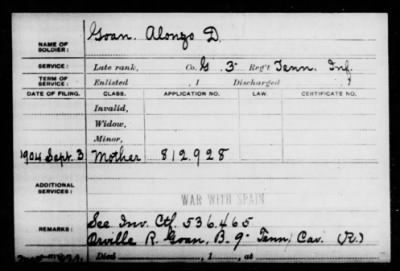 Goan, Alonzo D.
NAME OF SOLDIER:
SERVICE: Late rank, Co. G 3 Reg't Tenn. Inf.
TERM OF SERVICE: Enlisted , 1 Discharged , 1
DATE OF FILING. CLASS. APPLICATION NO. LAW. CERTIFICATE NO.
Invalid,
Widow,
Minor,
1904 Sept. 3 Mother 812.928
ADDITIONAL SERVICES:
WAR WITH SPAIN
REMARKS: See Inv. Ctf. 536.465
Orville R. Goan, B. 9" Tenn. Cav. (F.)
Died , 1 , at